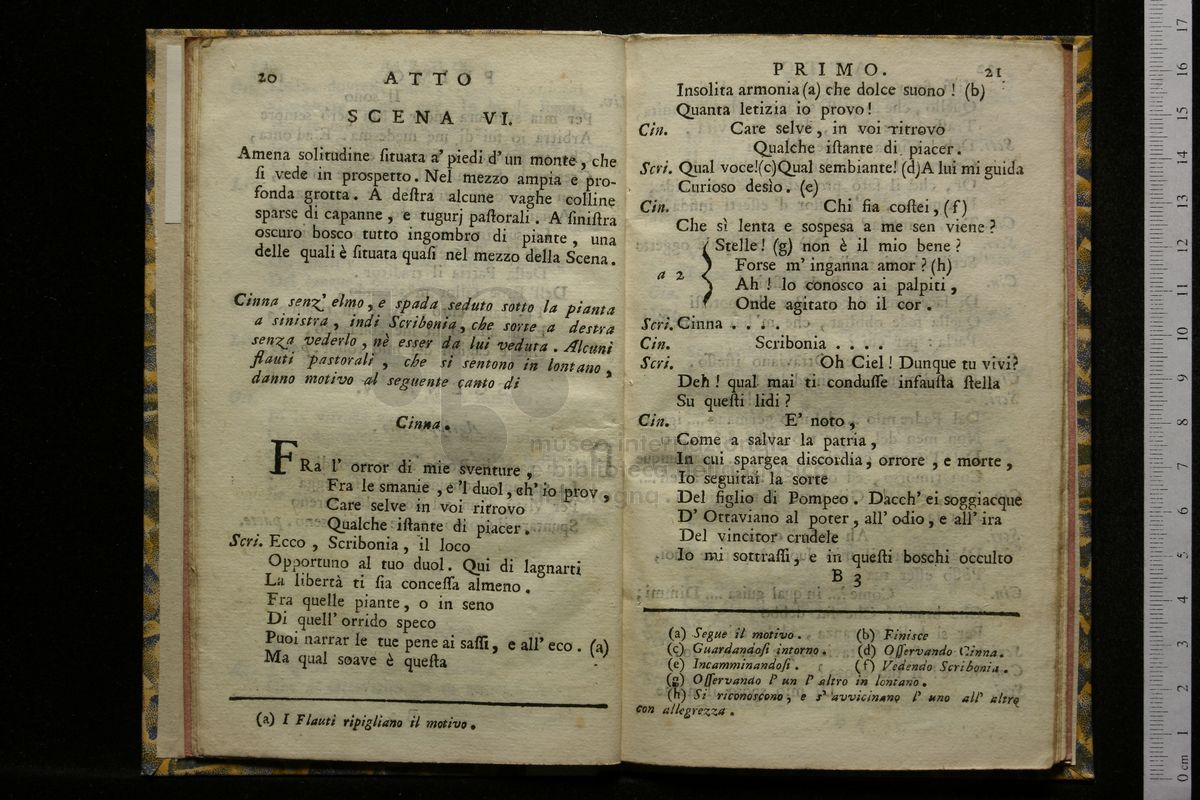 20
ATTO
SCENA VI.
Amena solitudine ſituata a' piedi d'un monte, che
ſi vede in proſpetto. Nel mezzo ampia e pro-
fonda grotta. A deſtra alcune vaghe colline
sparse di capanne, e tugurj paſtorali. A ſiniſtra
oscuro bosco tutto ingombro di piante, una
delle quali è ſituata quaſi nel mezzo della Scena.
Cinna senz' elmo, e spada seduto sotto la pianta
a sinistra, indi Scribonia, che sorte a destra
senza vederlo, nè esser da lui veduta. Alcuni
flauti pastorali, che si sentono in lontano,
danno motivo al seguente canto di
Cinna.
FRa l' orror di mie sventure,
Fra le smanie, e 'l duol, ch' io prov,
Care selve in voi ritrovo
Qualche iſtante di piacer.
Scri. Ecco, Scribonia, il loco
Opportuno al tuo duol. Qui di lagnarti
La libertà ti ſia conceſſa almeno.
Fra quelle piante, o in seno
Di quell' orrido speco
Puoi narrar le tue pene ai saſſi, e all' eco. (a)
Ma qual soave è queſta
(a) I Flauti ripigliano il motivo.
PRIMO.
21
Insolita armonia (a) che dolce suono! (b)
Quanta letizia io provo!
Cin. Care selve, in voi ritrovo
Qualche iſtante di piacer.
Scri. Qual voce!(c)Qual sembiante! (d)A lui mi guida
Curioso desìo. (e)
Cin. Chi ſia coſtei, (f)
Che sì lenta e sospesa a me sen viene?
Stelle! (g) non è il mio bene?
a 2 Forse m' inganna amor? (h)
Ah! lo conosco ai palpiti,
Onde agitato ho il cor.
Scri. Cinna . . . .
Cin. Scribonia . . . .
Scri. Oh Ciel! Dunque tu vivi?
Deh! qual mai ti conduſſe infauſta ſtella
Su queſti lidi?
Cin. E' noto,
Come a salvar la patria,
In cui spargea discordia, orrore, e morte,
Io seguitai la sorte
Del figlio di Pompeo. Dacch' ei soggiacque
D' Ottaviano al poter, all' odio, e all' ira
Del vincitor crudele
Io mi sottraſſi, e in queſti boschi occulto
B 3
(a) Segue il motivo. (b) Finisce
(c) Guardandoſi intorno. (d) Oſſervando Cinna.
(e) Incamminandoſi. (f) Vedendo Scribonia.
(g) Oſſervando l' un l' altro in lontano.
(h) Si riconoscono, e s' avvicinano l' uno all' altro
con allegrezza.